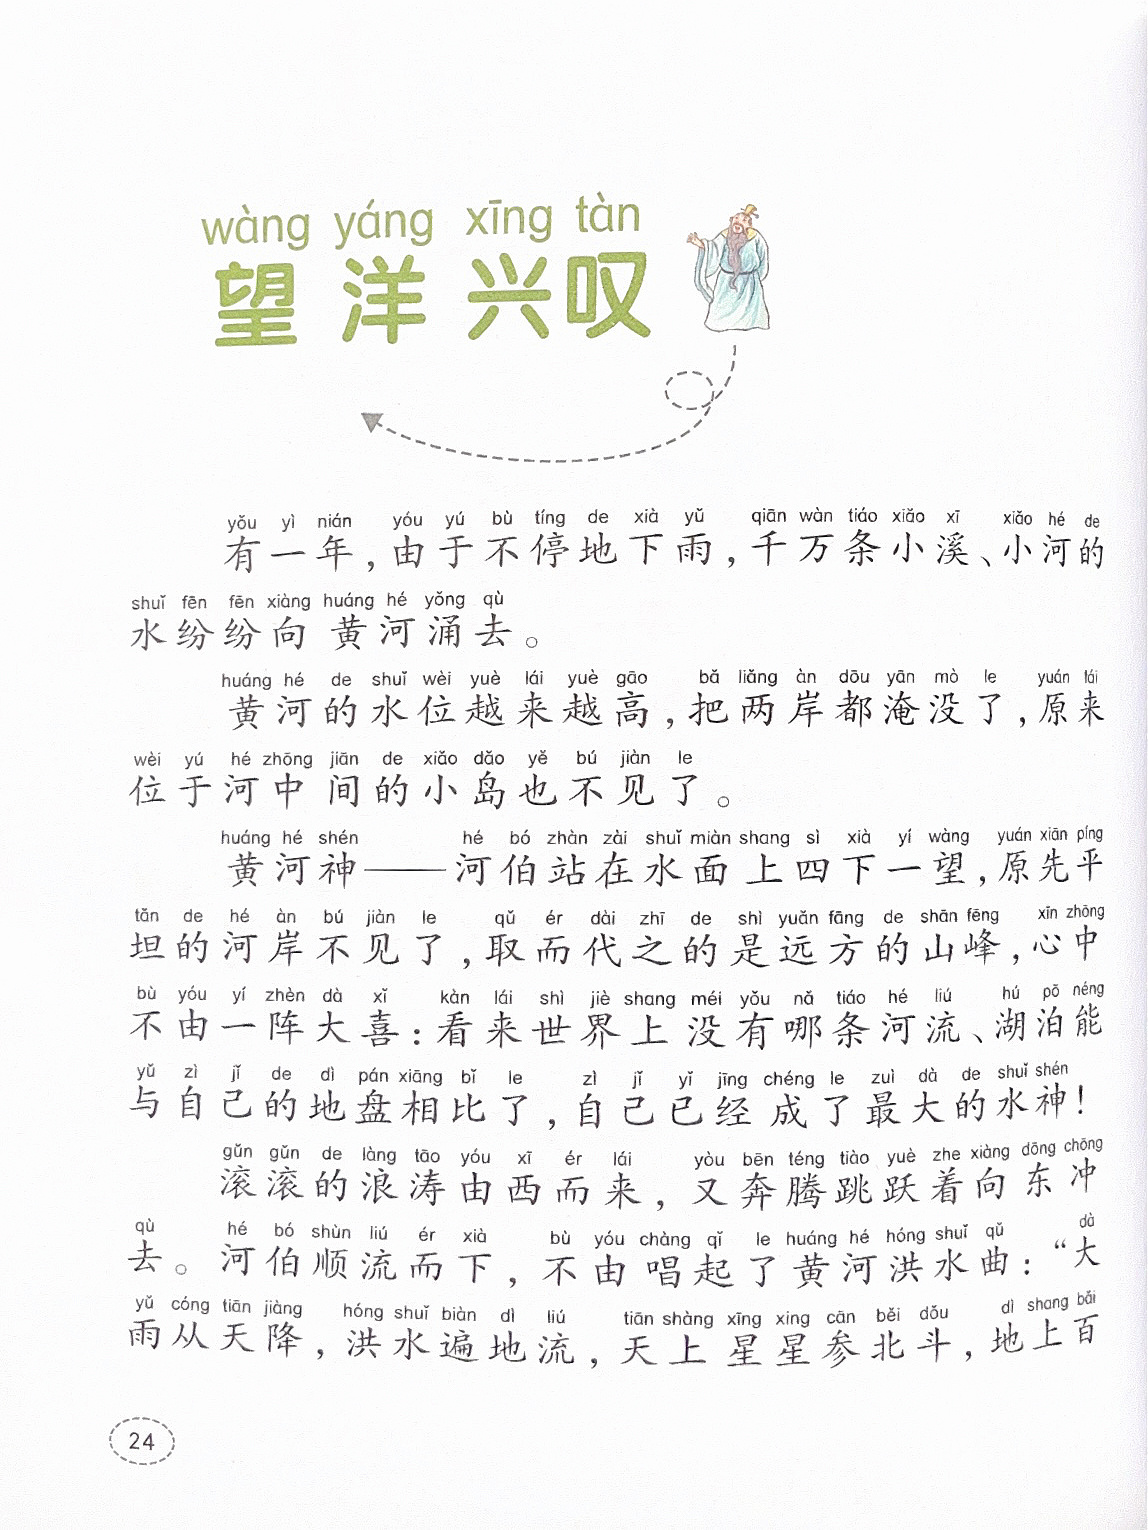 wàng yáng xīng tàn
望洋兴叹
yǒu yì nián yóu yú bù tíng de xià yǔ qiān wàn tiáo xiǎo xī xiǎo hé de
有一年，由于不停地下雨，千万条小溪、小河的
shuǐ fēn fēn xiàng huáng hé yǒng qù
水纷纷向黄河涌去。
huáng hé de shuǐ wèi yuè lái yuè gāo bǎ liǎng àn dōu yān mò le yuán lái
黄河的水位越来越高，把两岸都淹没了，原来
wèi yú hé zhōng jiān de xiǎo dǎo yě bú jiàn le
位于河中间的小岛也不见了。
huáng hé shén hé bó zhàn zài shuǐ miàn shang sì xià yí wàng yuán xiān píng
黄河神——河伯站在水面上四下一望，原先平
tǎn de hé àn bú jiàn le qǔ ér dài zhī de shì yuǎn fāng de shān fēng xīn zhōng
坦的河岸不见了，取而代之的是远方的山峰，心中
bù yóu yí zhèn dà xǐ kàn lái shì jiè shang méi yǒu nǎ tiáo hé liú hú pō néng
不由一阵大喜：看来世界上没有哪条河流、湖泊能
yǔ zì jǐ de dì pán xiāng bǐ le zì jǐ yǐ jīng chéng le zuì dà de shuǐ shén
与自己的地盘相比了，自己已经成了最大的水神！
gǔn gǔn de làng tāo yóu xī ér lái yòu bēn téng tiào yuè zhe xiàng dōng chōng
滚滚的浪涛由西而来，又奔腾跳跃着向东冲
qù hé bó shùn liú ér xià bù yóu chàng qǐ le huáng hé hóng shuǐ qǔ dà
去。河伯顺流而下，不由唱起了黄河洪水曲：“大
yǔ cóng tiān jiàng hóng shuǐ biàn dì liú tiān shàng xīng xing cān běi dǒu dì shang bǎi
雨从天降，洪水遍地流，天上星星参北斗，地上百
24